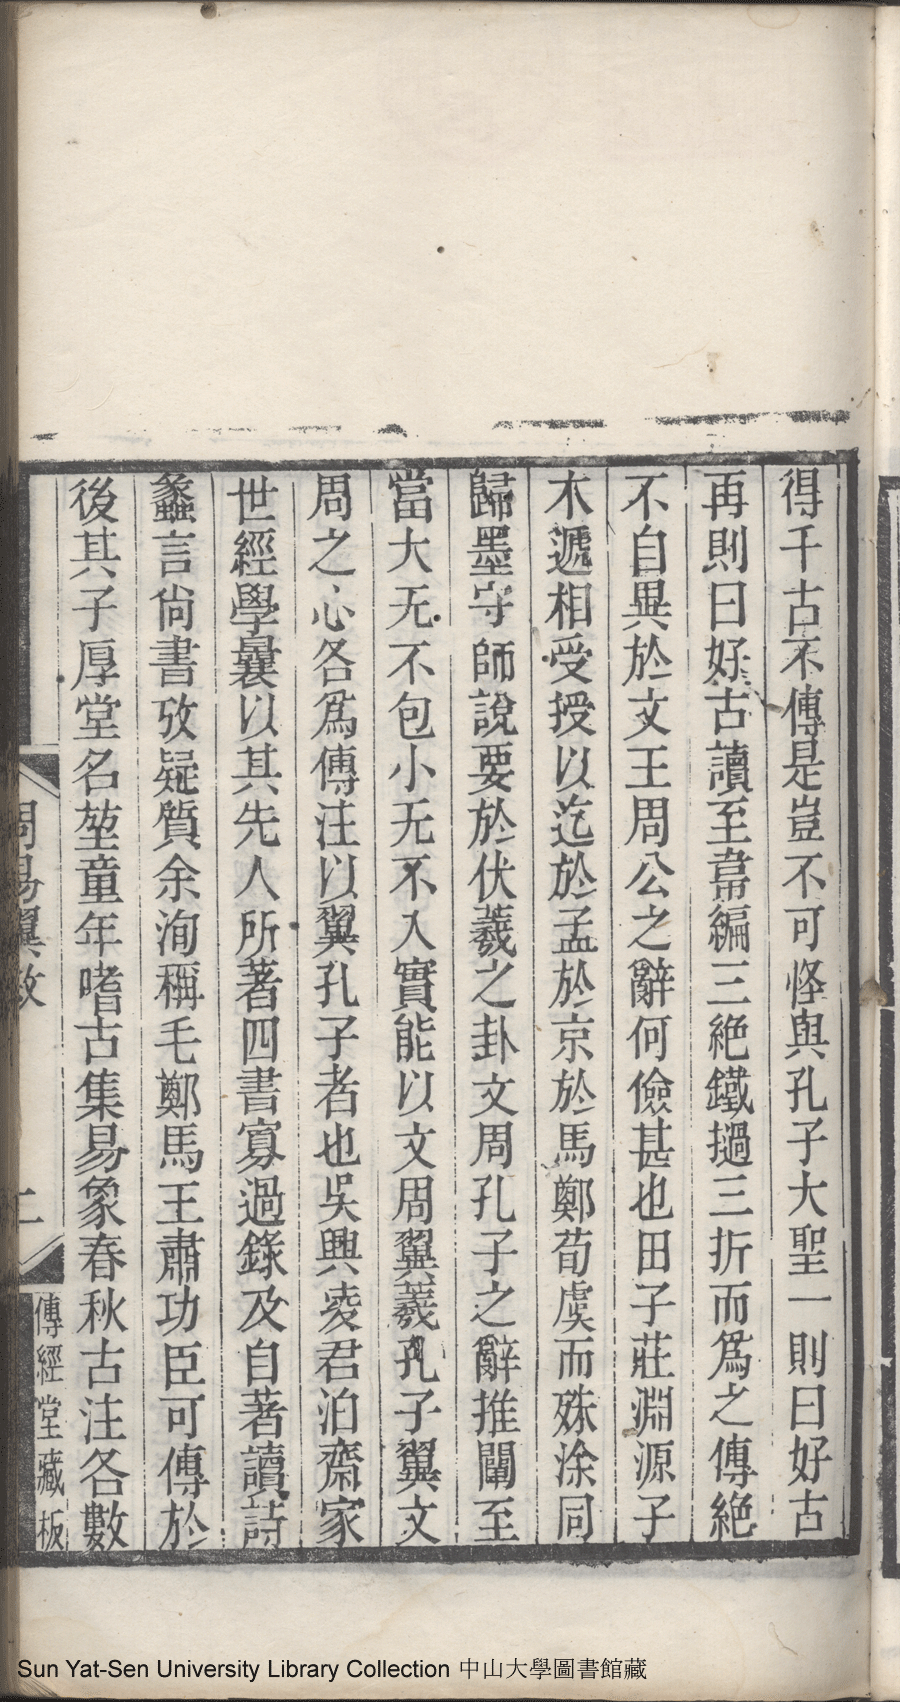 得千古不傳是豈不可怪與孔子大聖一則曰好古
再則曰好古讀至韋編三絕鐵撾三折而爲之傳絕
不自異於文王周公之辭何儉甚也田子莊淵源子
木遞相受授以迄於孟於京於馬鄭荀虞而殊涂同
歸墨守師說要於伏羲之卦文周孔子之辭推闡至
當大无不包小无不入實能以文周翼羲孔子翼文
周之心各爲傳注以翼孔子者也吳興凌君泊齋家
世經學曩以其先人所著四書寡過錄及自著讀詩
蠡言尙書攷疑質余洵稱毛鄭馬王肅功臣可傳於
後其子厚堂名堃童年嗜古集易象春秋古注各數
周易翼
二
傳經堂藏板
Sun Yat-Sen University Library Collection 中山大學圖書館藏